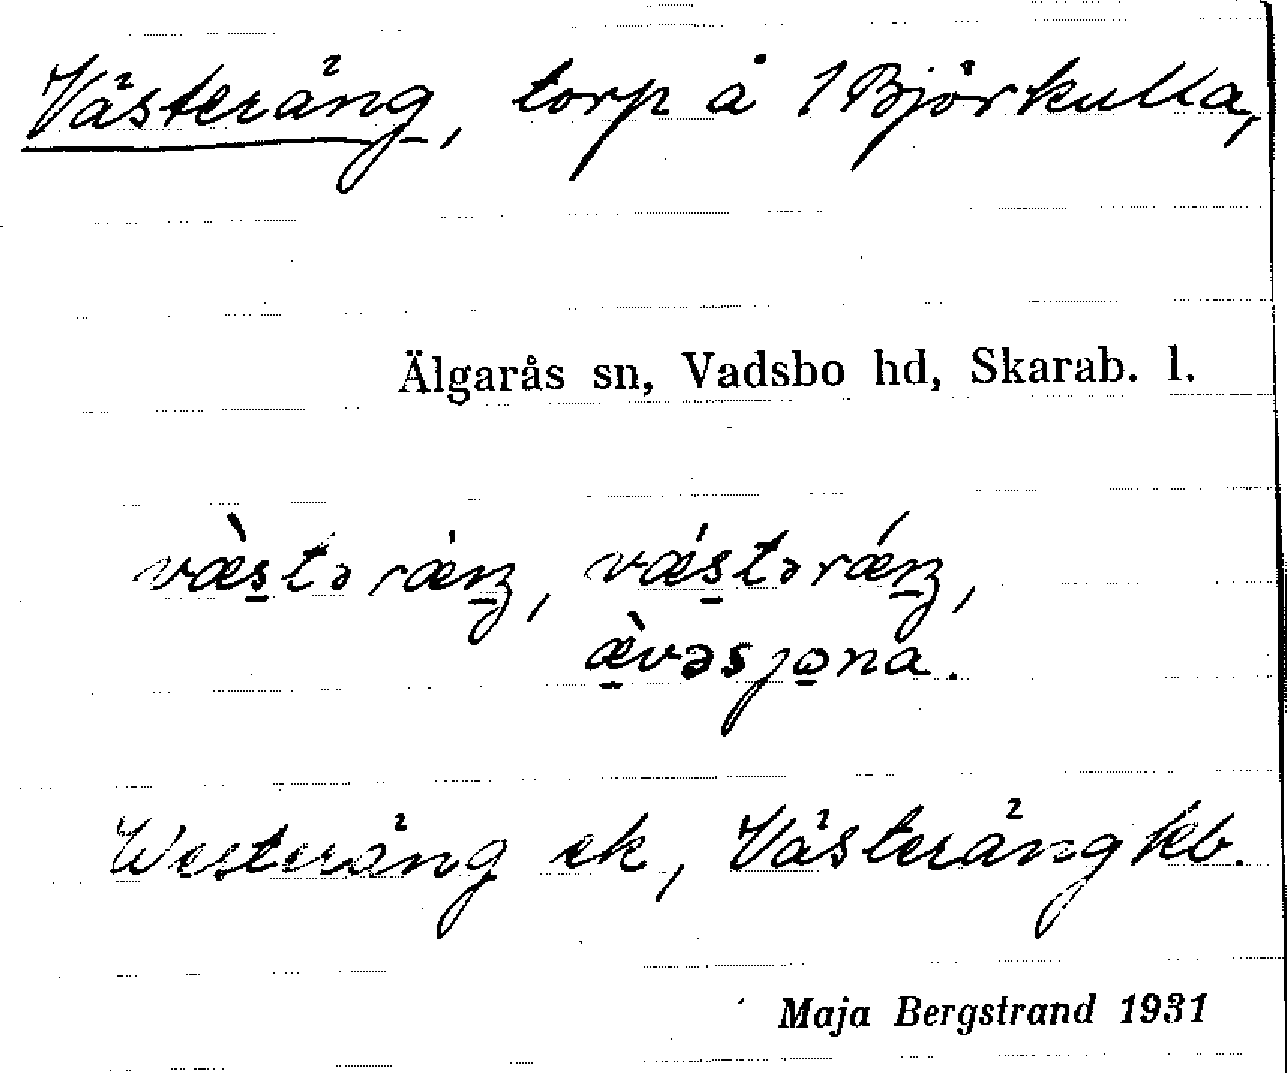 Västeräng, torp å 1 Björkulla,
Älgarås sn, Vadsbo hd, Skarab. l.
væ̀stərǽŋ, vǽstərǽŋ,
æ̀vəsjona.
Westeräng ek, Västeräng kb.
Maja Bergstrand 1931